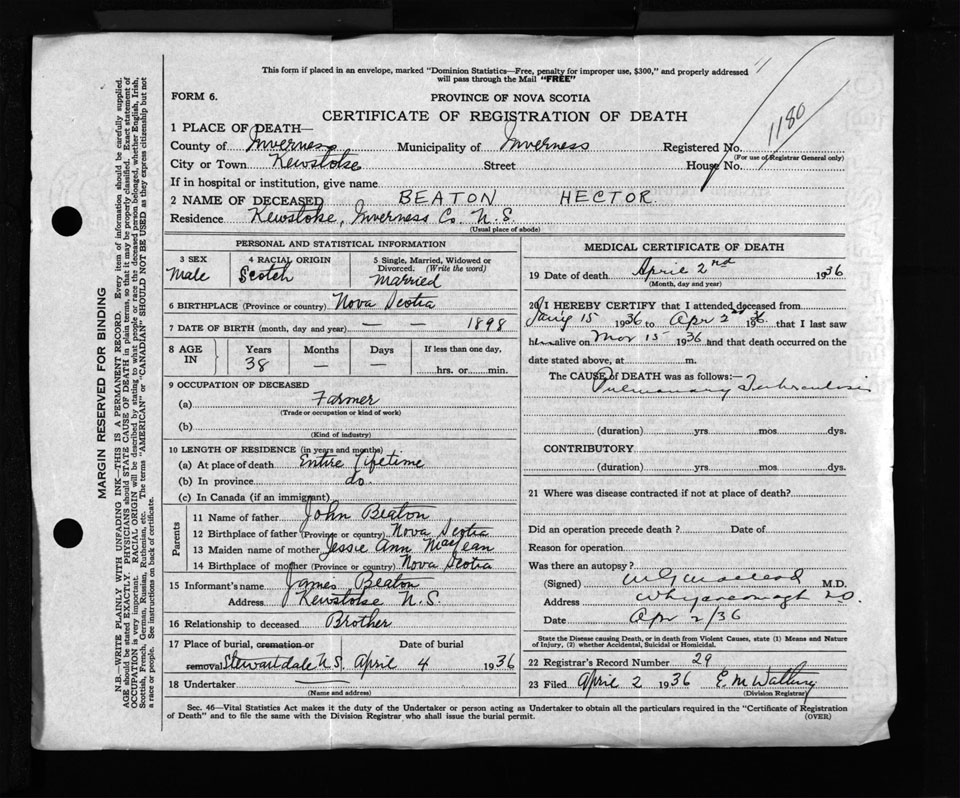 This form if placed in an envelope, marked "Dominion Statistics—Free, penalty for improper use, $300," and properly addressed
will pass through the Mail "FREE"
FORM 6.
PROVINCE OF NOVA SCOTIA
CERTIFICATE OF REGISTRATION OF DEATH
1180
1 PLACE OF DEATH—
County of Inverness Municipality of Inverness Registered No.
(For use of Registrar General only)
City or Town Kewstoke Street House No.
If in hospital or institution, give name
2 NAME OF DECEASED BEATON HECTOR.
Residence Kewstoke, Inverness Co. N.S.
(Usual place of abode)
PERSONAL AND STATISTICAL INFORMATION
3 SEX 4 RACIAL ORIGIN 5 Single, Married, Widowed or
Divorced. (Write the word)
Male Scotch Married
6 BIRTHPLACE (Province or country) Nova Scotia
7 DATE OF BIRTH (month, day and year) — — 1898
8 AGE IN Years Months Days If less than one day,
38 — — hrs. or min.
9 OCCUPATION OF DECEASED
(a) Farmer
(Trade or occupation or kind of work)
(b)
(Kind of industry)
10 LENGTH OF RESIDENCE (in years and months)
(a) At place of death Entire Lifetime
(b) In province do.
(c) In Canada (if an immigrant)
Parents
11 Name of father John Beaton
12 Birthplace of father (Province or country) Nova Scotia
13 Maiden name of mother Jessie Ann MacLean
14 Birthplace of mother (Province or country) Nova Scotia
15 Informant's name James Beaton
Address Kewstoke N.S.
16 Relationship to deceased Brother
17 Place of burial, cremation or Date of burial
removal Stewartdale N.S. April 4 1936
18 Undertaker —
(Name and address)
MEDICAL CERTIFICATE OF DEATH
19 Date of death April 2nd 1936
(Month, day and year)
20 I HEREBY CERTIFY that I attended deceased from
15 1936 to Apr 2nd 1936. that I last saw
h alive on Mar 15 1936 and that death occurred on the
date stated above, at m.
The CAUSE OF DEATH was as follows:—
Pulmonary Tuberculosis
(duration) yrs. mos. dys.
CONTRIBUTORY
(duration) yrs. mos. dys.
21 Where was disease contracted if not at place of death?
Did an operation precede death? Date of
Reason for operation
Was there an autopsy?
(Signed) M.D.
Address Whycocomagh
Date Apr 2/36
State the Disease causing Death, or in death from Violent Causes, state (1) Means and Nature
of Injury, (2) whether Accidental, Suicidal or Homicidal.
22 Registrar's Record Number 29
23 Filed April 2 1936 E. M.
(Division Registrar)
Sec. 46—Vital Statistics Act makes it the duty of the Undertaker or person acting as Undertaker to obtain all the particulars required in the "Certificate of Registration
of Death" and to file the same with the Division Registrar who shall issue the burial permit.
(OVER)
MARGIN RESERVED FOR BINDING
N.B.—WRITE PLAINLY WITH UNFADING INK—THIS IS A PERMANENT RECORD. Every item of information should be carefully supplied.
AGE should be stated EXACTLY. PHYSICIANS should STATE CAUSE OF DEATH in plain terms, so that it may be properly classified. Exact statement of
OCCUPATION is very important. RACIAL ORIGIN will be described by stating to what people or race the deceased person belonged, whether English, Irish,
Scottish, French, German, Russian, Ruthenian, etc. The terms "AMERICAN" or "CANADIAN" SHOULD NOT BE USED as they express citizenship but not
a race or people. See instructions on back of certificate.